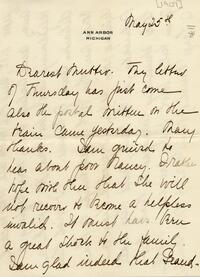 [1907]
May 25th
ANN ARBOR
MICHIGAN
Dearest Mother. My letter
of Thursday has just come
also the postal written on the
train came yesterday. Many
thanks. I am grieved to
hear about poor Nancy. I rather
hope with her that she will
not recover to become a helpless
invalid. It must have been
a great shock to the family.
I am glad indeed that